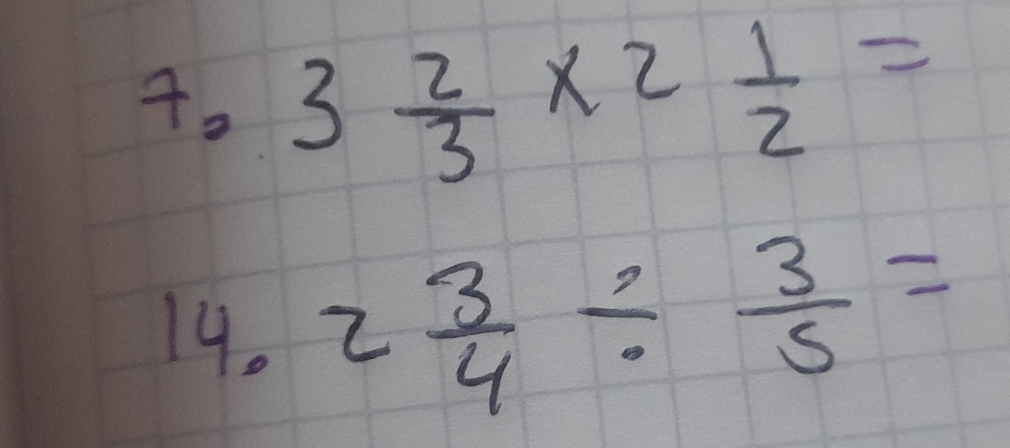 7. 3 2/3 × 2 1/2 =
14. 2 3/4 ÷ 3/5 =